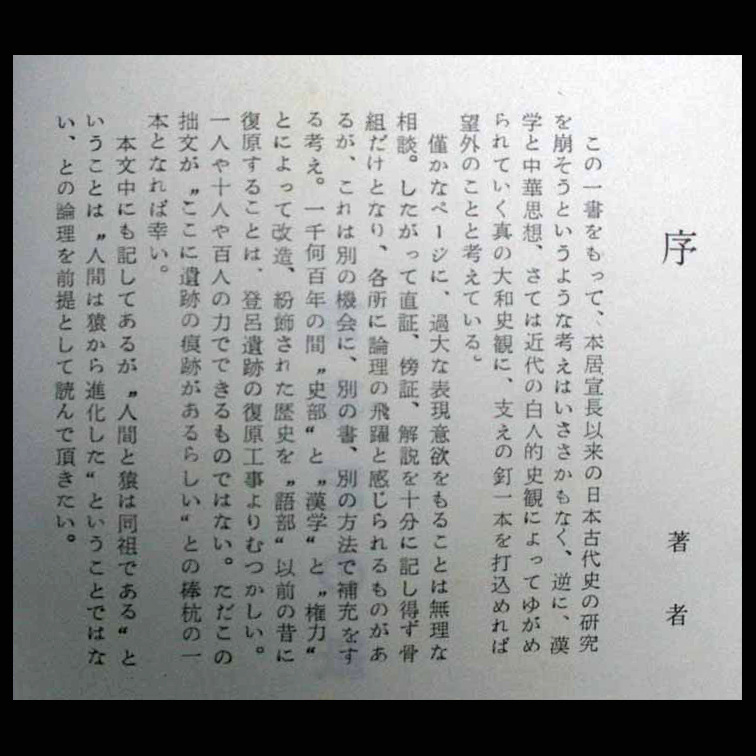 序
著者
この一書をもって、本居宣長以来の日本古代史の研究
を崩そうというような考えはいささかもなく、逆に、漢
学と中華思想、さては近代の白人的史観によってゆがめ
られていく真の大和史観に、支えの釘一本を打込めれば
望外のことと考えている。
僅かなページに、過大な表現意欲をもることは無理な
相談。したがって直証、傍証、解説を十分に記し得ず骨
組だけとなり、各所に論理の飛躍と感じられるものがあ
るが、これは別の機会に、別の書、別の方法で補充をす
る考え。一千何百年の間〝史部〟と〝漢学〟と〝権力〟
とによって改造、紛飾された歴史を〝語部〟以前の昔に
復原することは、登呂遺跡の復原工事よりむつかしい。
一人や十人や百人の力でできるものではない。ただこの
拙文が〝ここに遺跡の痕跡があるらしい〟との棒杭の一
本となれば幸い。
本文中にも記してあるが〝人間と猿は同祖である〟と
いうことは〝人間は猿から進化した〟ということではな
い、との論理を前提として読んで頂きたい。